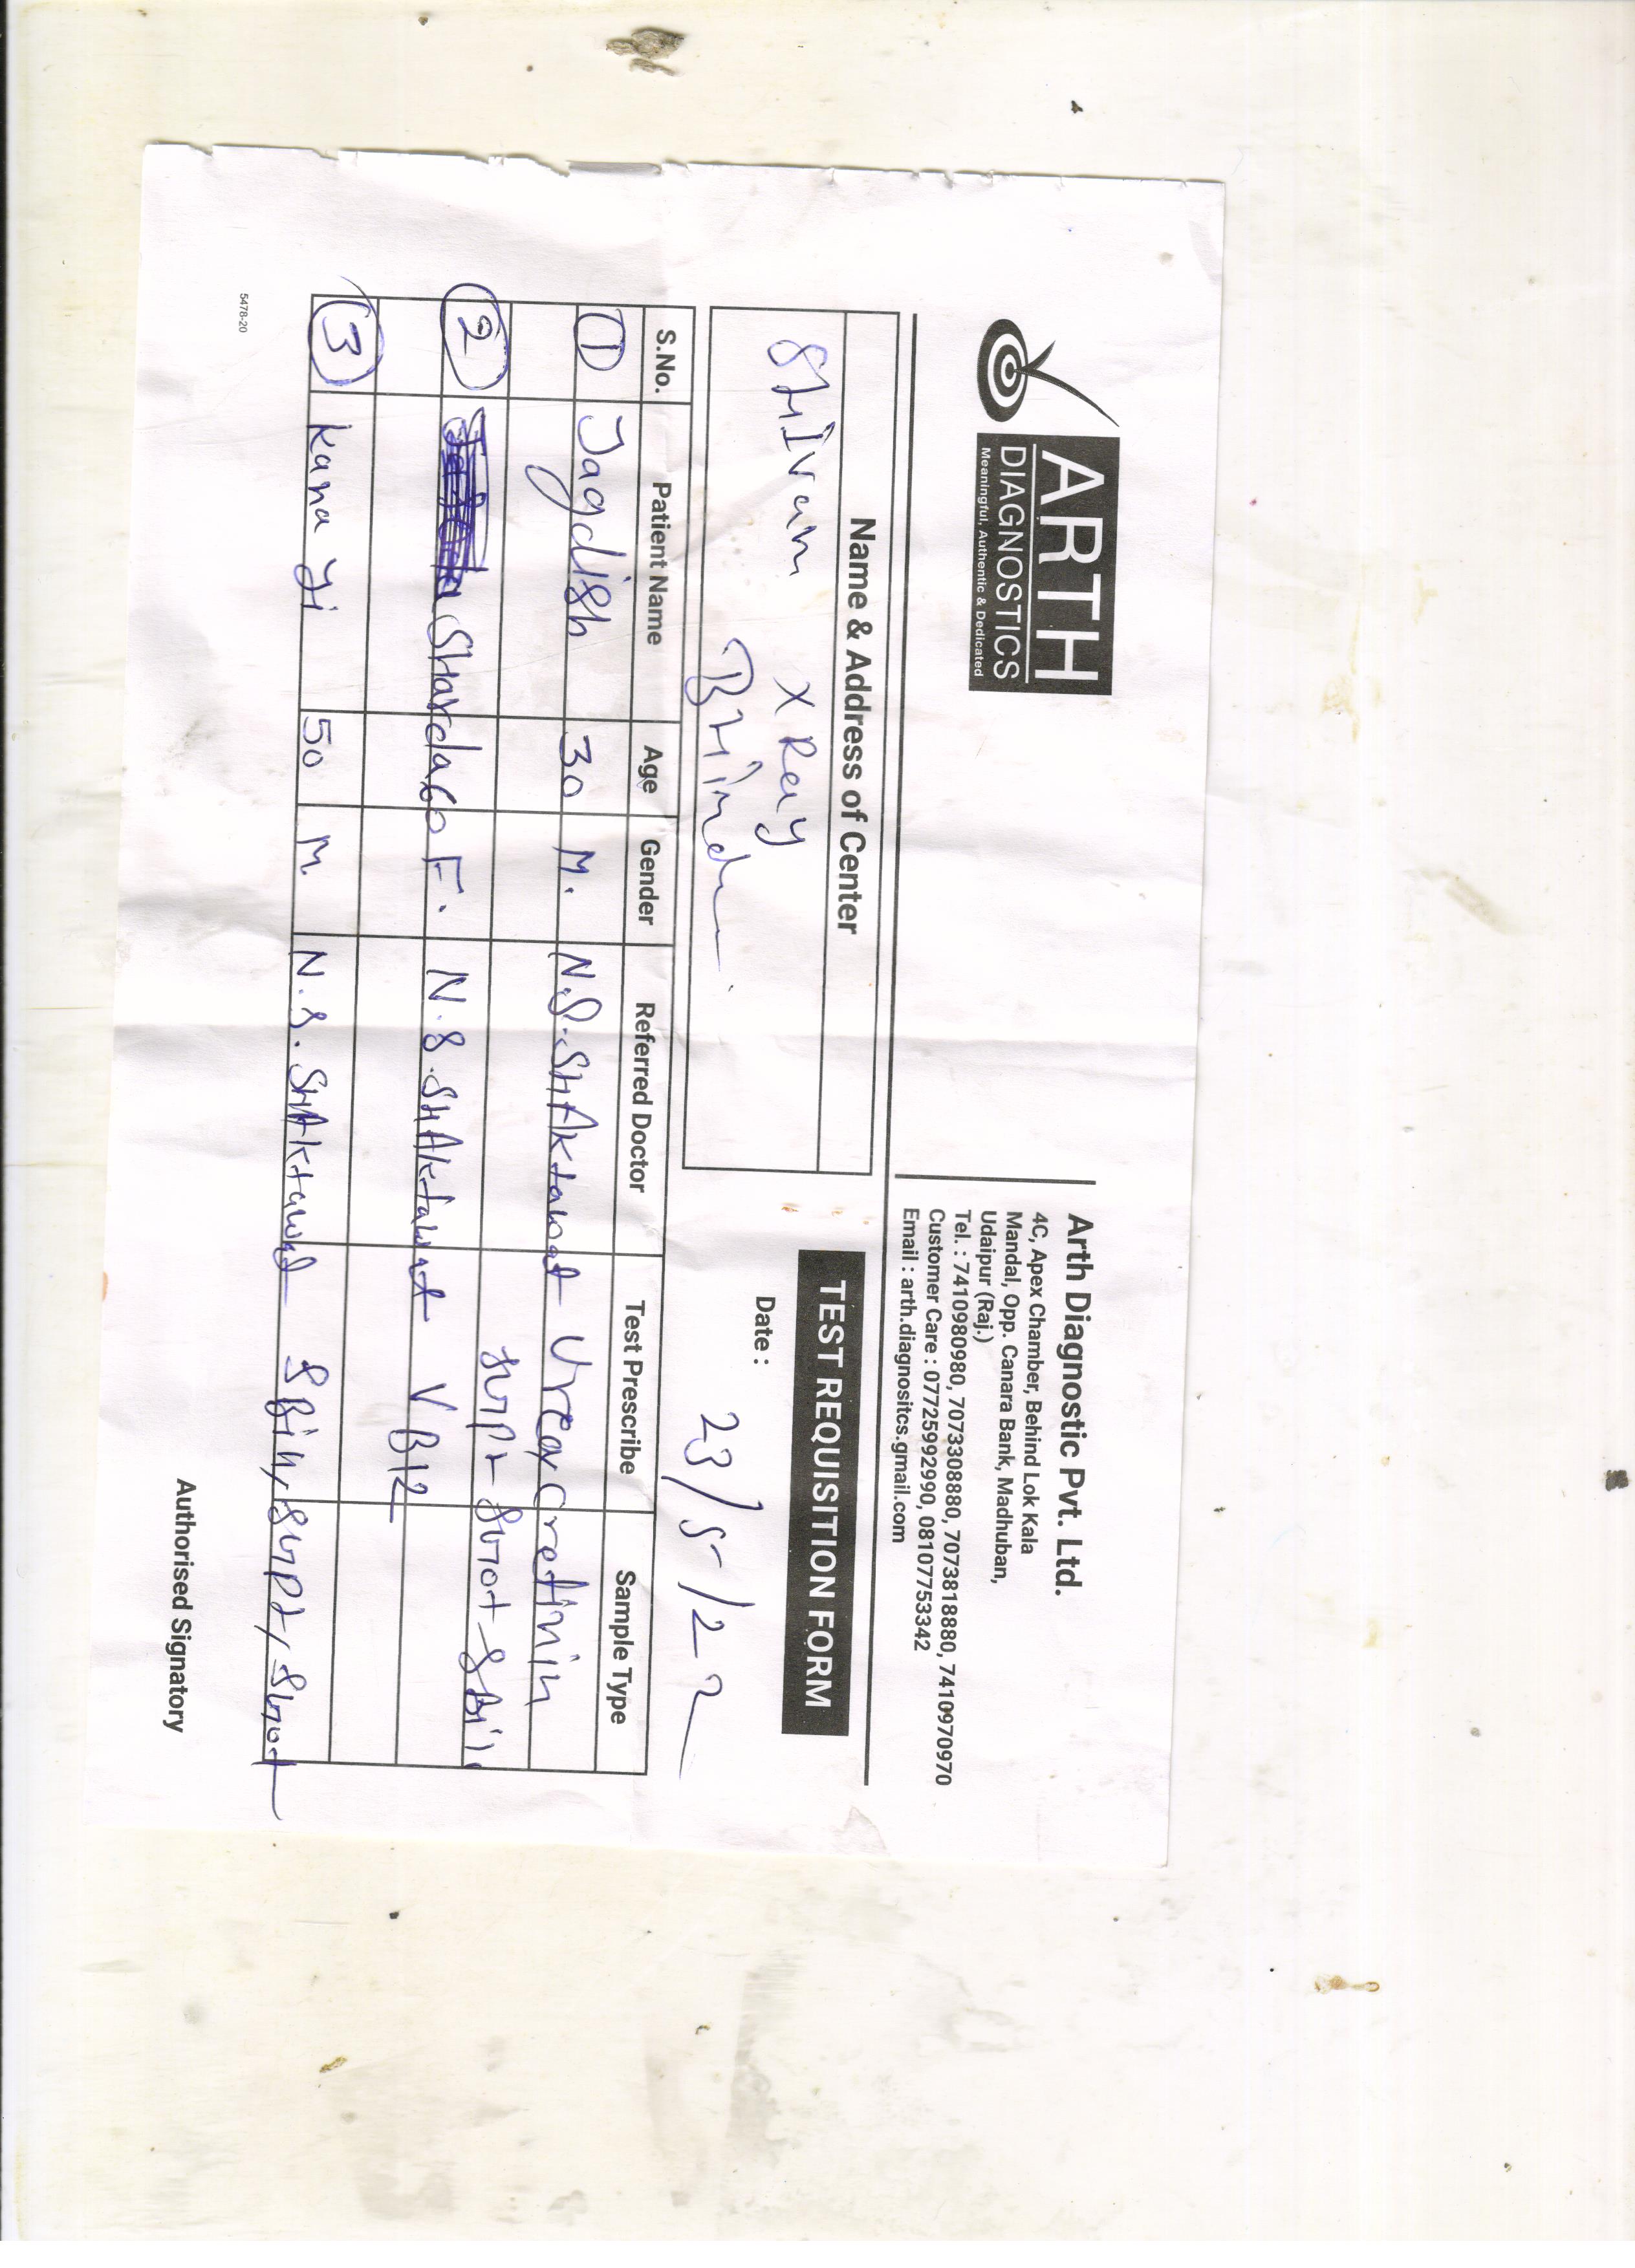 ARTH
DIAGNOSTICS
Meaningful, Authentic & Dedicated
Arth Diagnostic Pvt. Ltd.
4C, Apex Chamber, Behind Lok Kala
Mandal, Opp. Canara Bank, Madhuban,
Udaipur (Raj.)
Tel. : 7410980980, 7073308880, 7073818880, 7410970970
Customer Care : 07725992990, 08107753342
Email : arth.diagnositcs.gmail.com
Name & Address of Center
SHIvam X Ray
BHinder
TEST REQUISITION FORM
Date : 23/5/22
S.No. Patient Name Age Gender Referred Doctor Test Prescribe Sample Type
1 Jagdish 30 M. N.S.SHAktawat Urea, Cretinin
SGPT SGOT SBil
2 SHarda 60 F. N.S.SHAktawat V B12
3 Kana Ji 50 M N.S.SHAktawat SBil, SGPT, SGOT
Authorised Signatory
5478-20